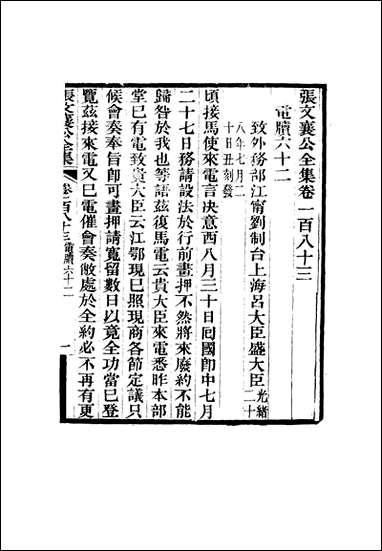 張文襄公全集卷一百八十三
電牘六十二
致外務部江甯劉制台上海呂大臣盛大臣光緒二十
八年七月二
十日丑刻發
頃接馬使來電言決意西八月三十日回國卽中七月
二十七日務請設法於行前畫押不然將來廢約不能
歸咎於我也等語茲復馬電云貴大臣來電悉昨本部
堂已有電致貴大臣云江鄂現已照現商各節定議只
候會奏奉旨卽可畫押請寬留數日以竟全功當已登
覽茲接來電又已電催會奏敝處於全約必不再有更
張文襄公全集 卷一百八十三 電牘六十二 一